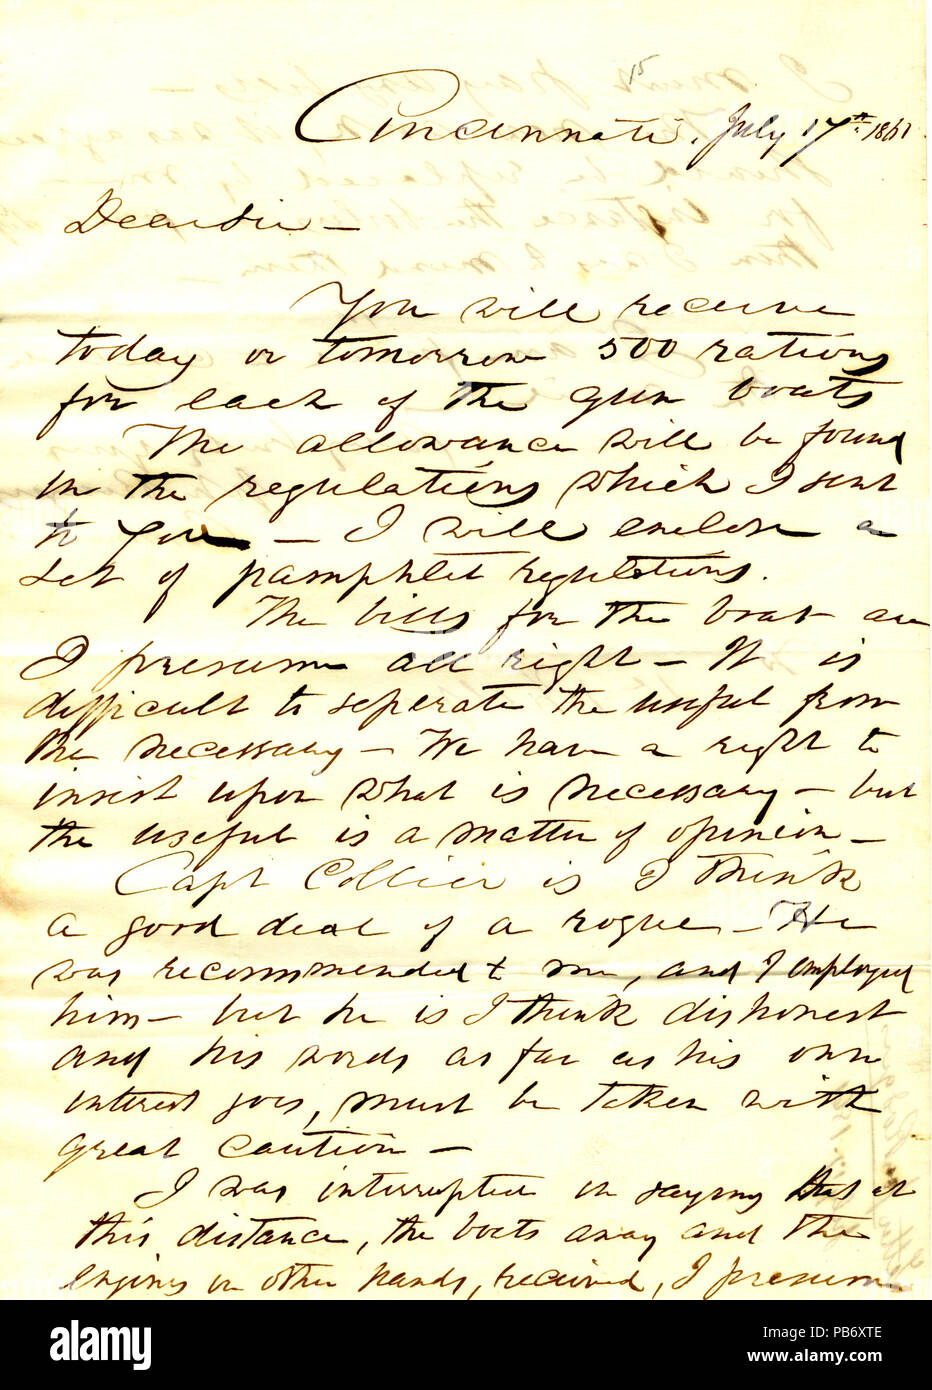 15
Cincinnati, July 17th 1861
Dear Sir —
You will receive
today or tomorrow 500 rations
for each of the gun boats
The allowance will be found
in the regulations which I sent
to you — I will enclose a
set of pamphlet regulations.
The bills for the boat are
I presume all right — It is
difficult to seperate the useful from
the necessary — We have a right to
insist upon what is necessary — but
the useful is a matter of opinion —
Capt Collier is I think
a good deal of a rogue — He
was recommended to me, and I employed
him — but he is I think dishonest
and his words as far as his own
interest goes, must be taken with
great caution —
I was interrupted in saying that at
this distance, the boats away and the
engines in other hands, received, I presume
alamy
Image ID: PB6XTE
www.alamy.com